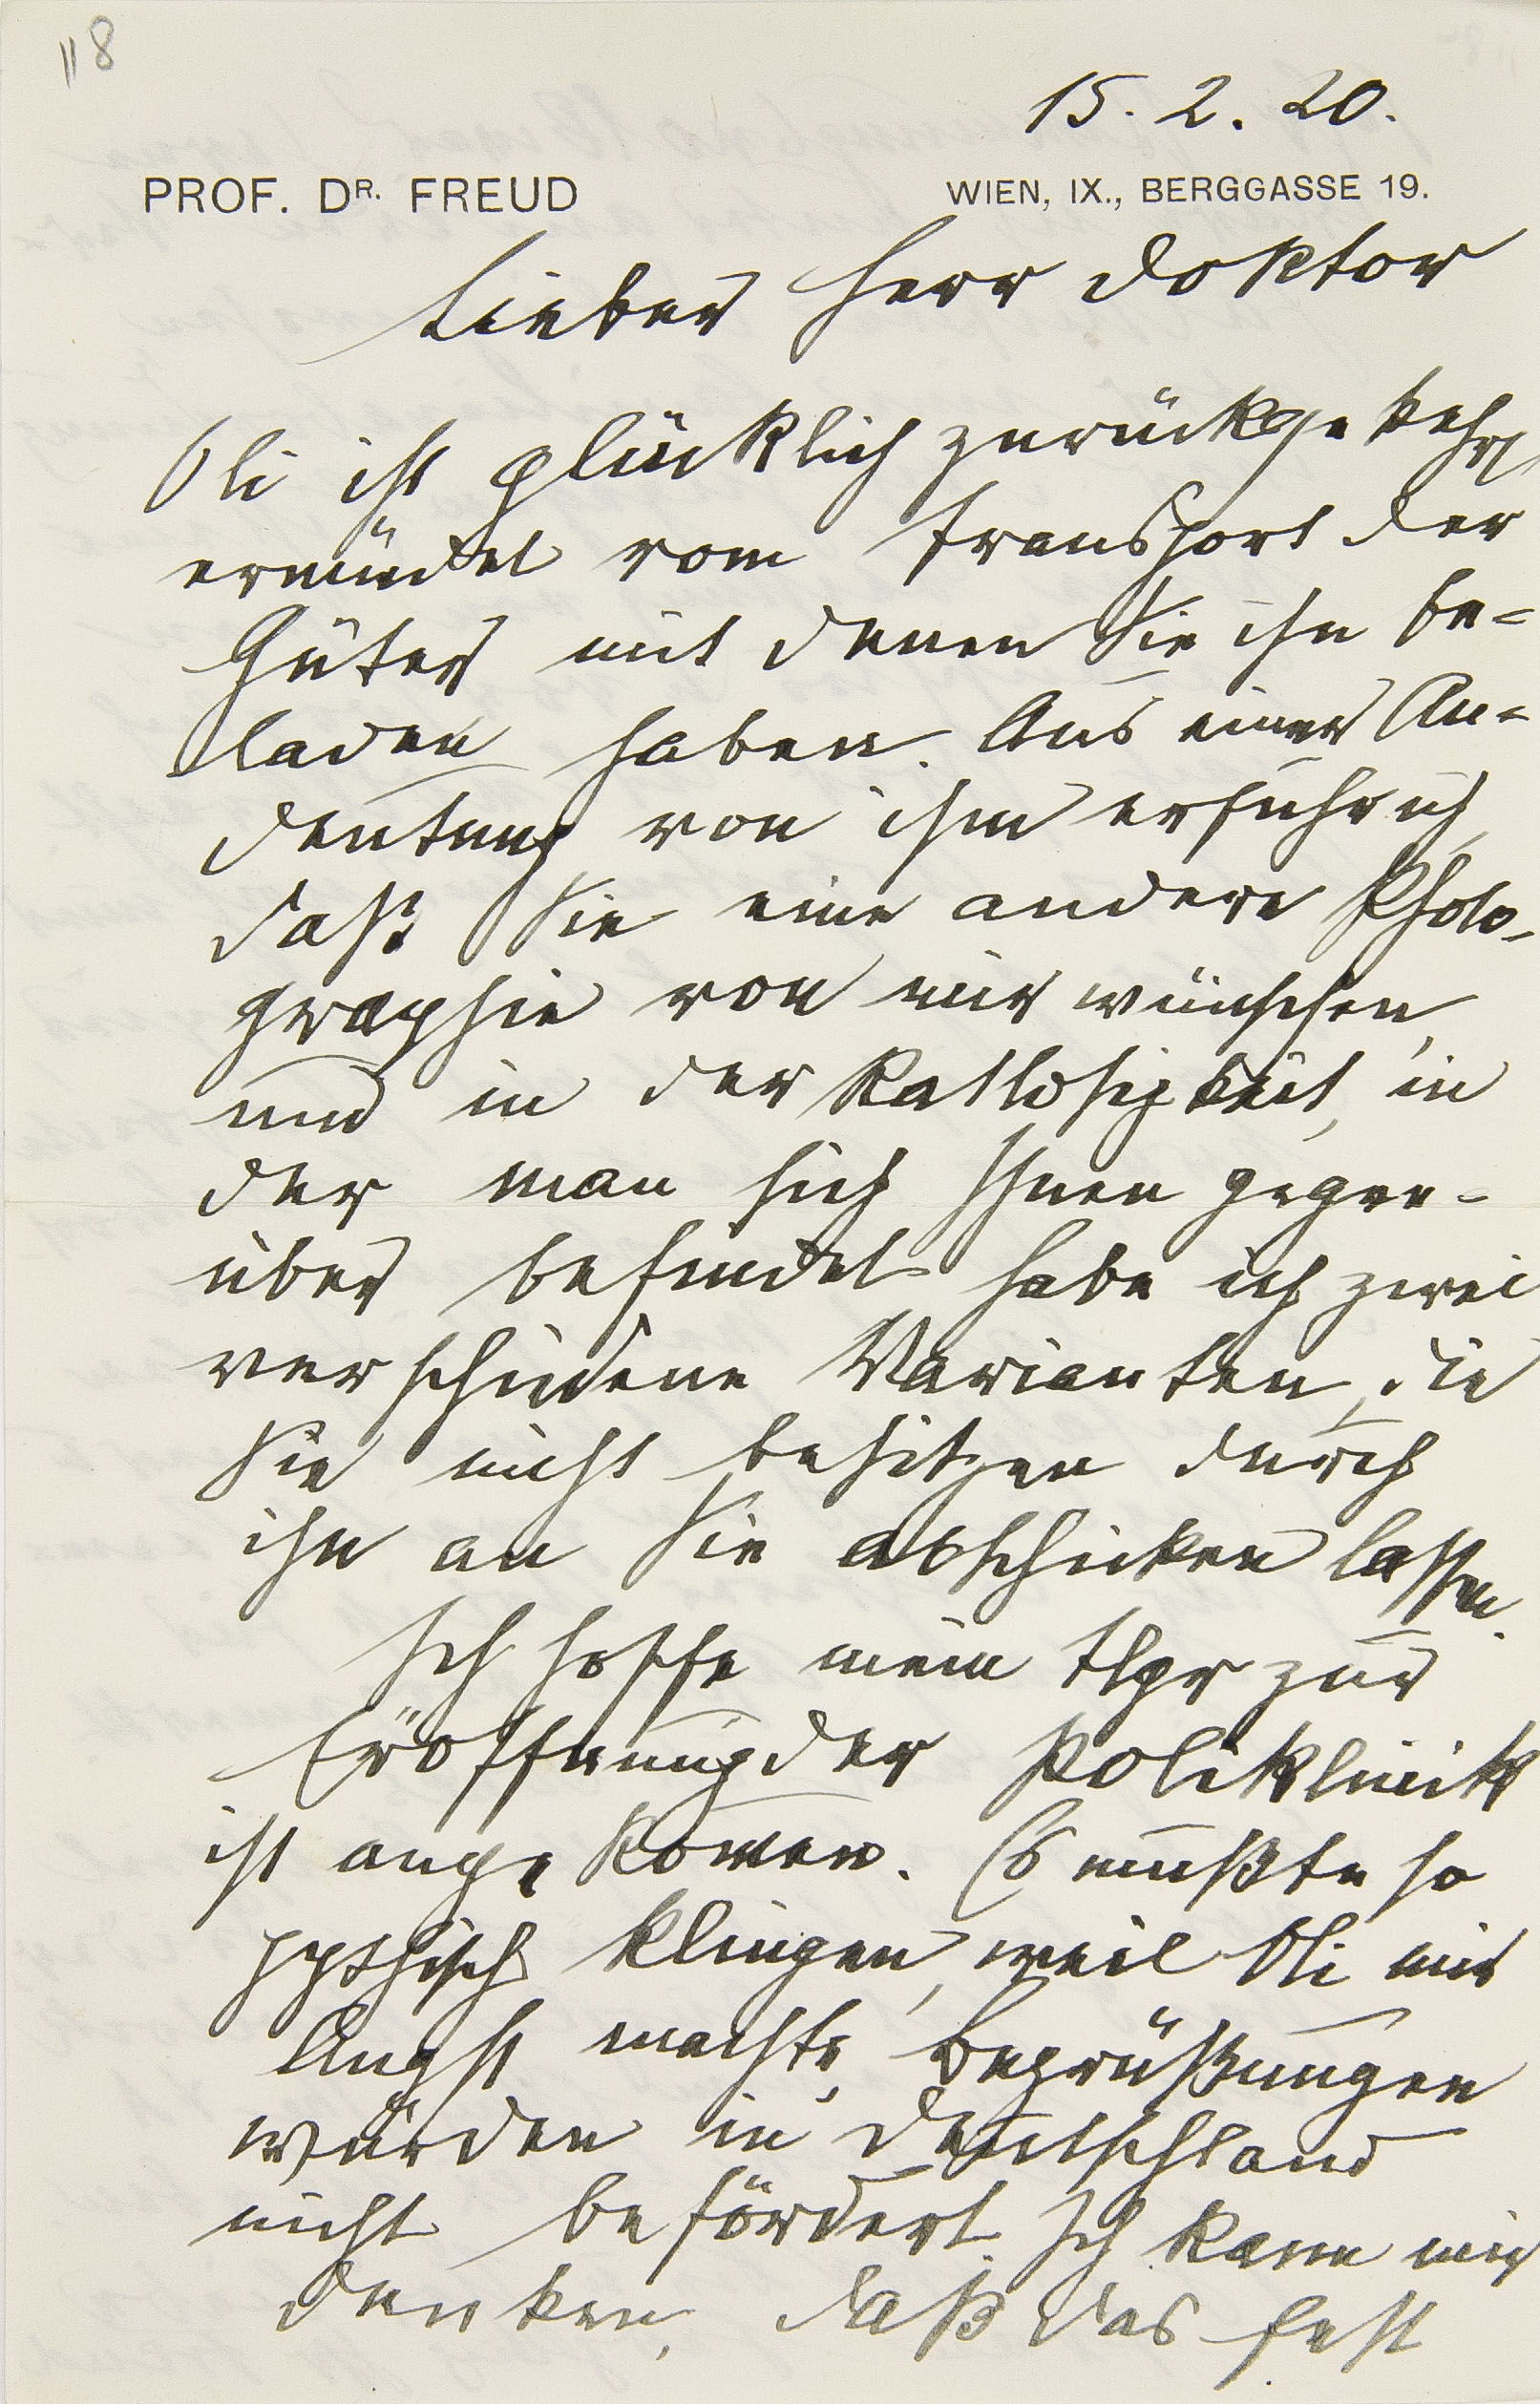 118
15. 2. 20.
PROF. DR. FREUD WIEN, IX., BERGGASSE 19.
Lieber Herr Doktor
Oli ist glücklich zurückgekehrt,
ermüdet vom Transport der
Güter mit denen Sie ihn be-
laden haben. Aus einer An-
deutung von ihm erfuhr ich,
daß Sie eine andere Photo-
graphie von mir wünschen,
und in der Ratlosigkeit, in
der man sich Ihnen gegen-
über befindet habe ich zwei
verschiedene Varianten, die
Sie nicht besitzen durch
ihn an Sie abschicken lassen.
Ich hoffe mein Tlgr zur
Eröffnung der Poliklinik
ist angekom̄en. Es mußte so
pythisch klingen, weil Oli mir
Angst machte, Begrüßungen
würden in Deutschland
nicht befördert. Ich kann mir
denken, daß das Fest